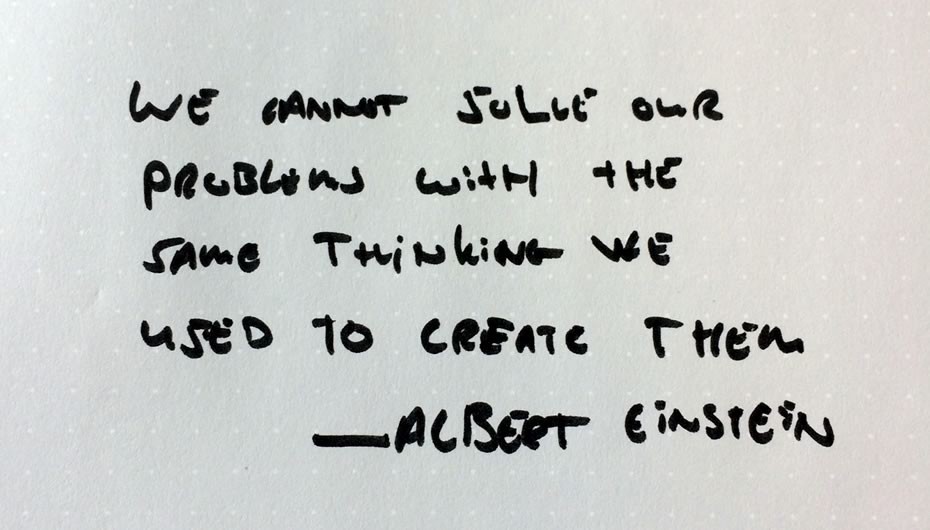 WE CANNOT SOLVE OUR
PROBLEMS WITH THE
SAME THINKING WE
USED TO CREATE THEM
—ALBERT EINSTEIN